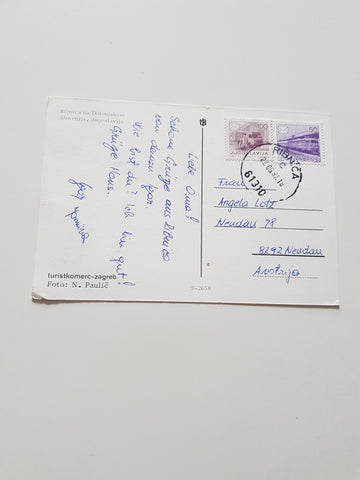 Ribnica na Dolenjskem
Slovenija, Jugoslavija
Liebe Oma!
Schöne Grüße aus Ribnica
von deinem Igor.
Wie bist du? Ich bin gut!
Grüße Hans.
Igor
turistkomerc-zagreb
Foto: N. Paulič
S-2658
JUGOSLAVIJA
50
RIBNICA
C
61310
Frau
Angela Lotz
Neudau 78
8292 Neudau
Avstrija